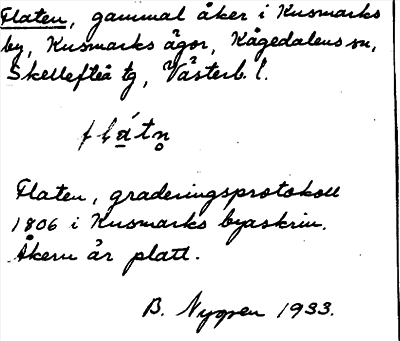 Flaten, gammal åker i Kusmarks
by, Kusmarks ägor, Kågedalens sn,
Skellefteå tg, Västerb. l.
Flaten, graderingsprotokoll
1806 i Kusmarks byaskrin.
Åkern är platt.
B. Nygren 1933.